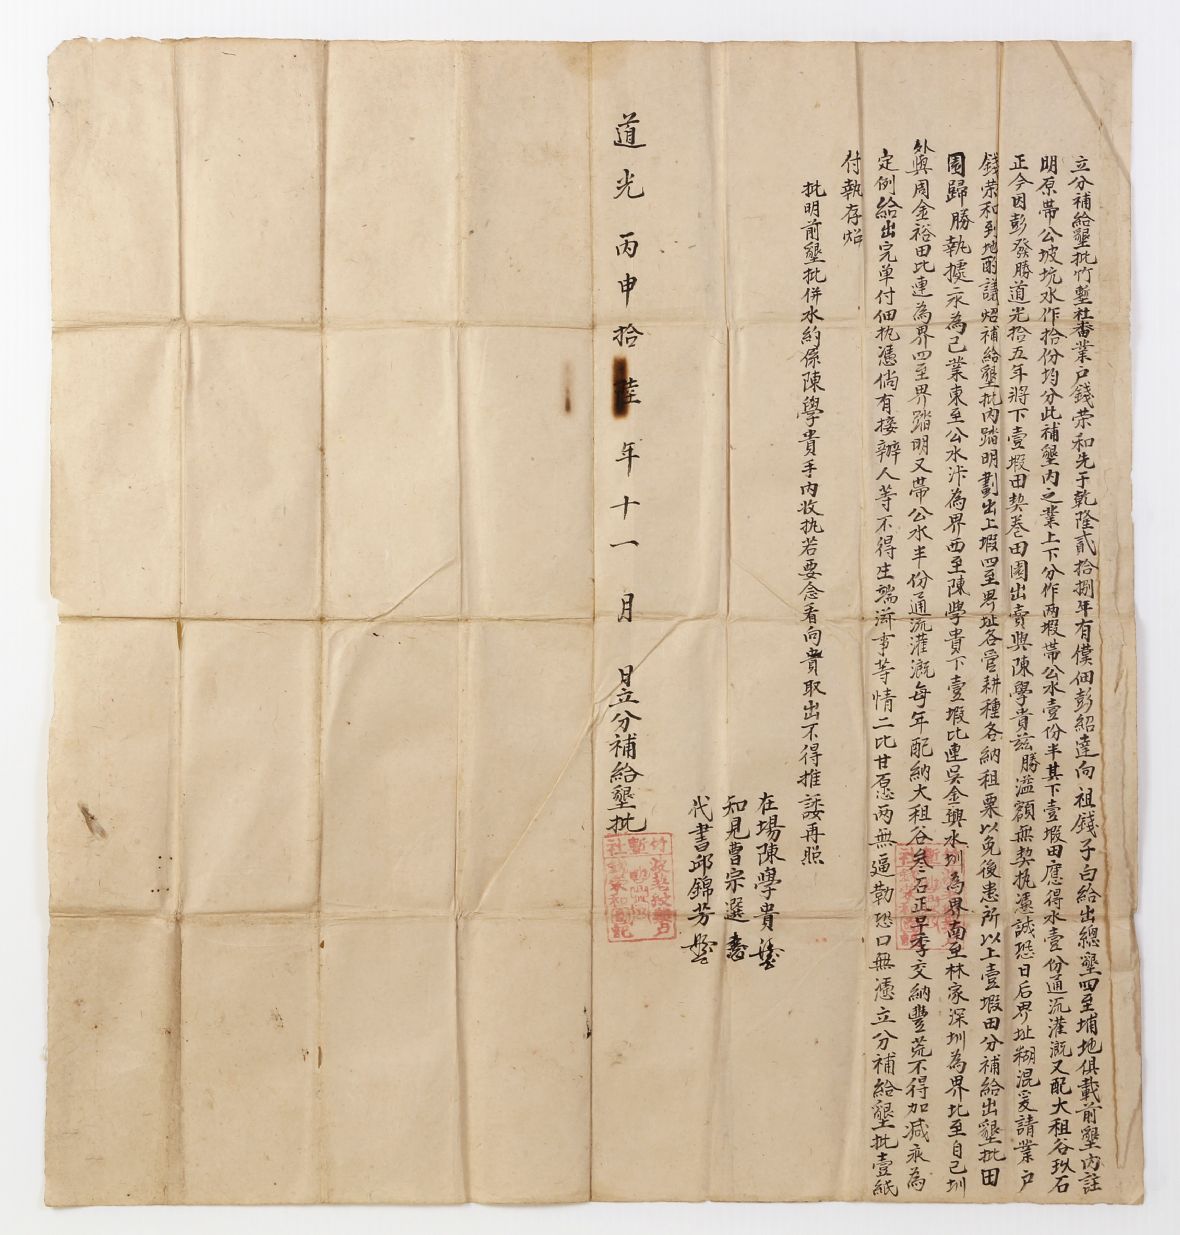 立分補給墾批竹塹社番業户錢荣和先于乾隆貳拾捌年有僕佃彭紹達向祖錢子白給出總墾四至埔地俱載前墾內註
明原帶公坡坑水作拾份均分此補墾內之業上下分作兩塅帶公水壹份半其下壹塅田應得水壹份通流灌溉又配大租谷玖石
正今因彭發勝道光拾五年將下壹塅田契卷田園出賣與陳學貴茲勝溢額無契执憑誠恐日后界址糊混爰請業户
錢荣和到地酌議炤補給墾批內踏明劃出上塅四至界址各管耕種各納租粟以免後患所以上壹塅田分補給出墾批田
園歸勝執據永為己業東至公水汴為界西至陳學貴下壹塅比連吳金興水圳為界南至林家深圳為界北至自己圳
外與周金裕田比連為界四至界踏明又帶公水半份通流灌溉每年配納大租谷叁石正早季交納豐荒不得加減永為
定例給出完单付佃执憑倘有接辦人等不得生端滋事等情二比甘愿两無逼勒恐口無憑立分補給墾批壹紙
付執存炤
批明前墾批併水約係陳學貴手內收执若要念看向貴取出不得推諉再照
在場陳學貴
知見曹宗選
代書邱錦芳
道光丙申拾陸年十一月 日立分補給墾批